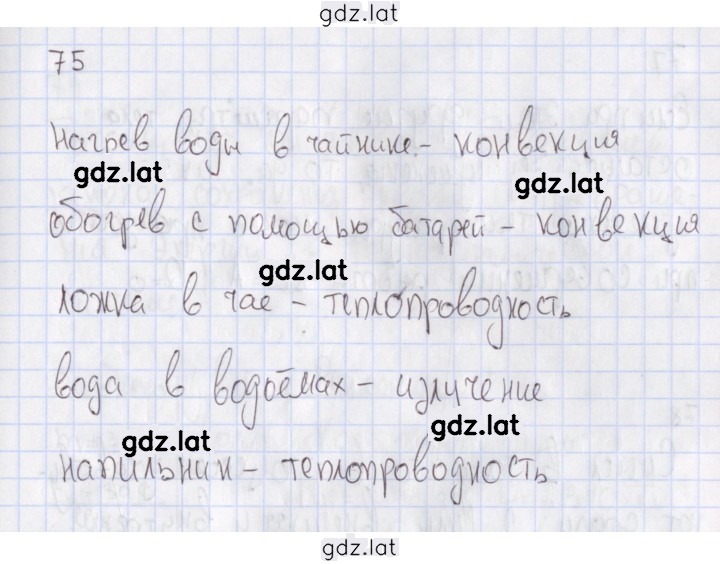 gdz.lat
75
нагрев воды в чайнике - конвекция
gdz.lat
gdz.lat
обогрев с помощью батарей - конвекция
gdz.lat
ложка в чае - теплопроводность
вода в водоёмах - излучение
gdz.lat
gdz.lat
напильник - теплопроводность
gdz.lat